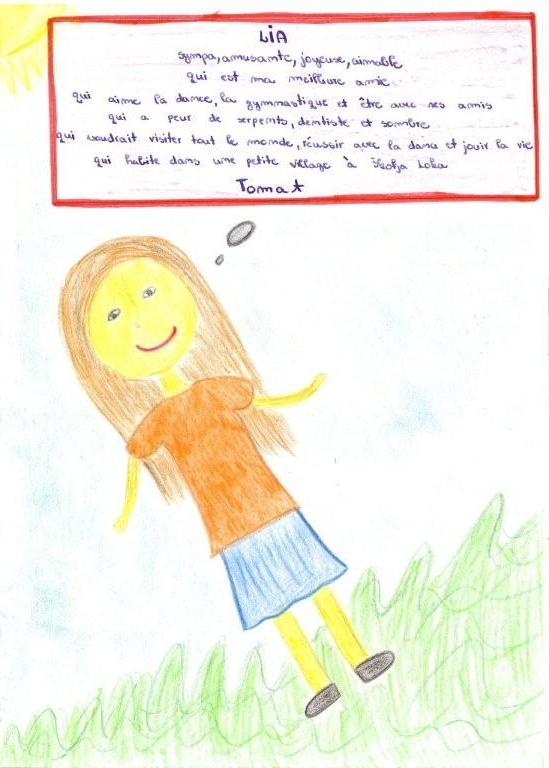 LIA
sympa, amusante, joyeuse, aimable
qui est ma meilleure amie.
qui aime la dance, la gymnastique et être avec ses amis
qui a peur de serpents, dentiste et sombre
qui voudrait visiter tout le monde, réussir avec la dance et jouir la vie
qui habite dans une petite village à Škofja Loka
Tomat